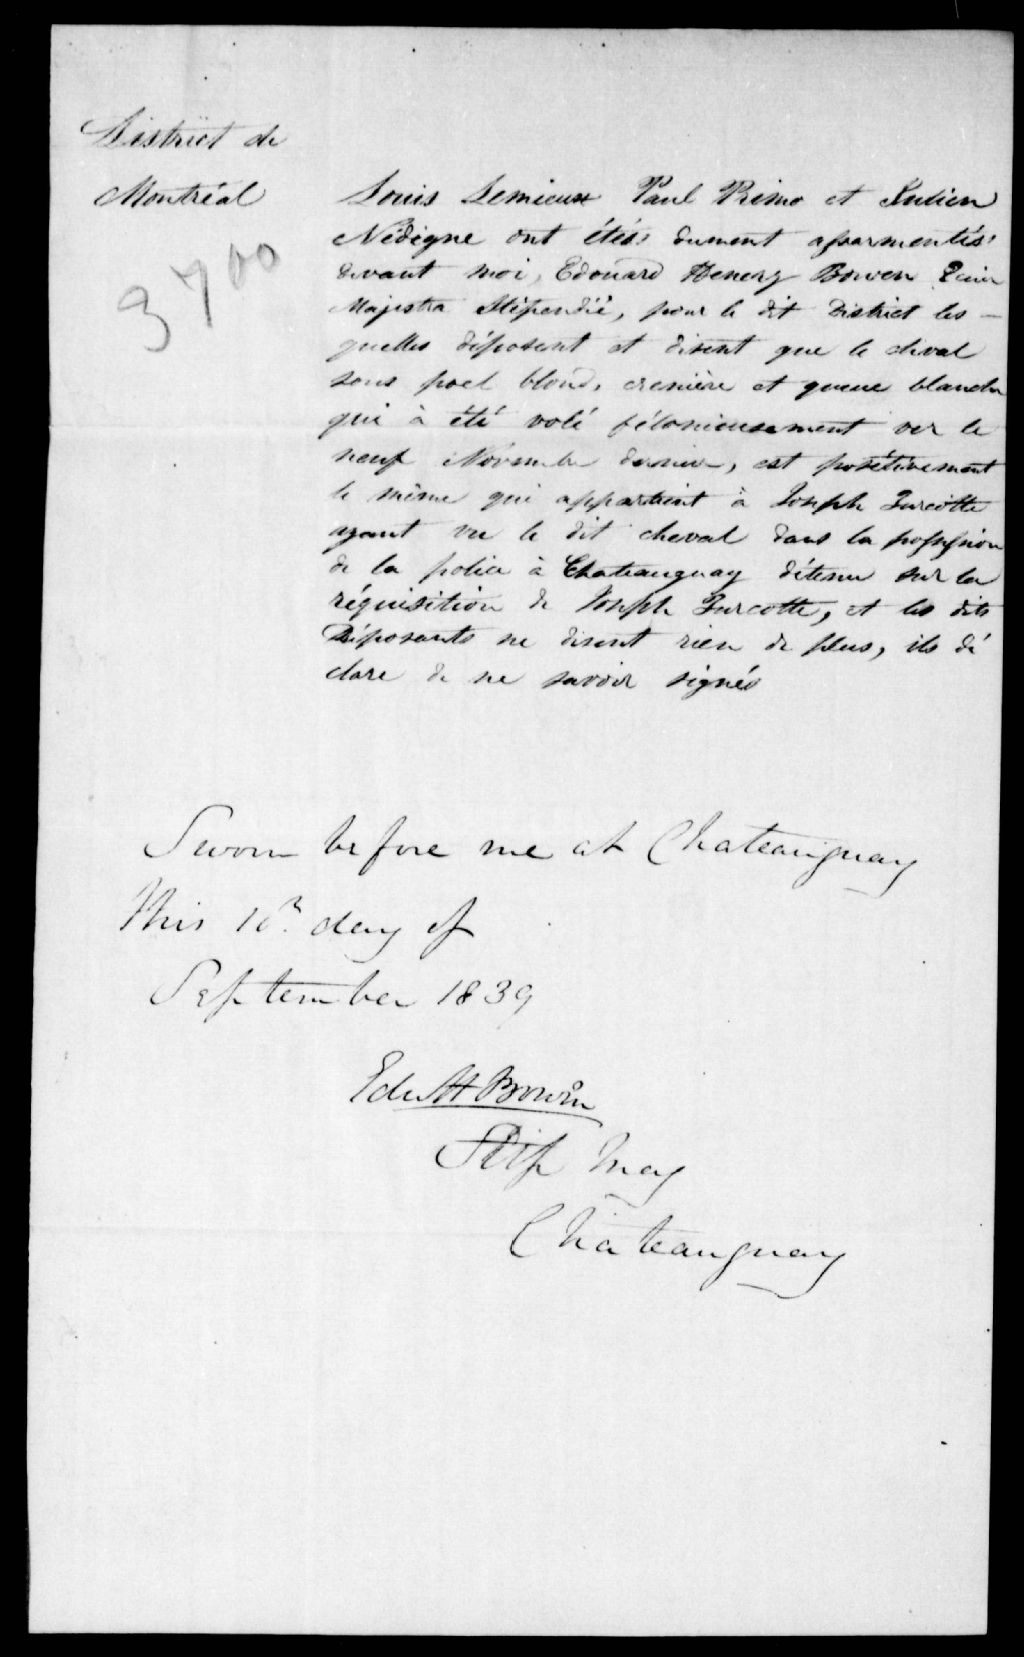 District de
Montréal
3700
Louis Lemieux Paul Primo et Julien
Nédigne ont étés dument assarmentés
devant moi, Edouard Henery Bowen Ecuier
Majistra Stipendié, pour le dit District les-
quelles déposent et disent que le cheval
sous poel blond, crenière et queue blanche
qui à été volé félonieusement ver le
neuf Novembre dernier, est posétivement
le même qui appartient à Joseph Turcotte
ayant vu le dit cheval dans la possession
de la police à Chateauguay détenu sur la
réquisition de Joseph Turcotte, et les dits
Déposants ne disent rien de plus, ils dé
clare de ne savoir signés
Sworn before me at Chateauguay
this 10th day of
September 1839
Edw H Bowen
Stip Mag
Chateauguay